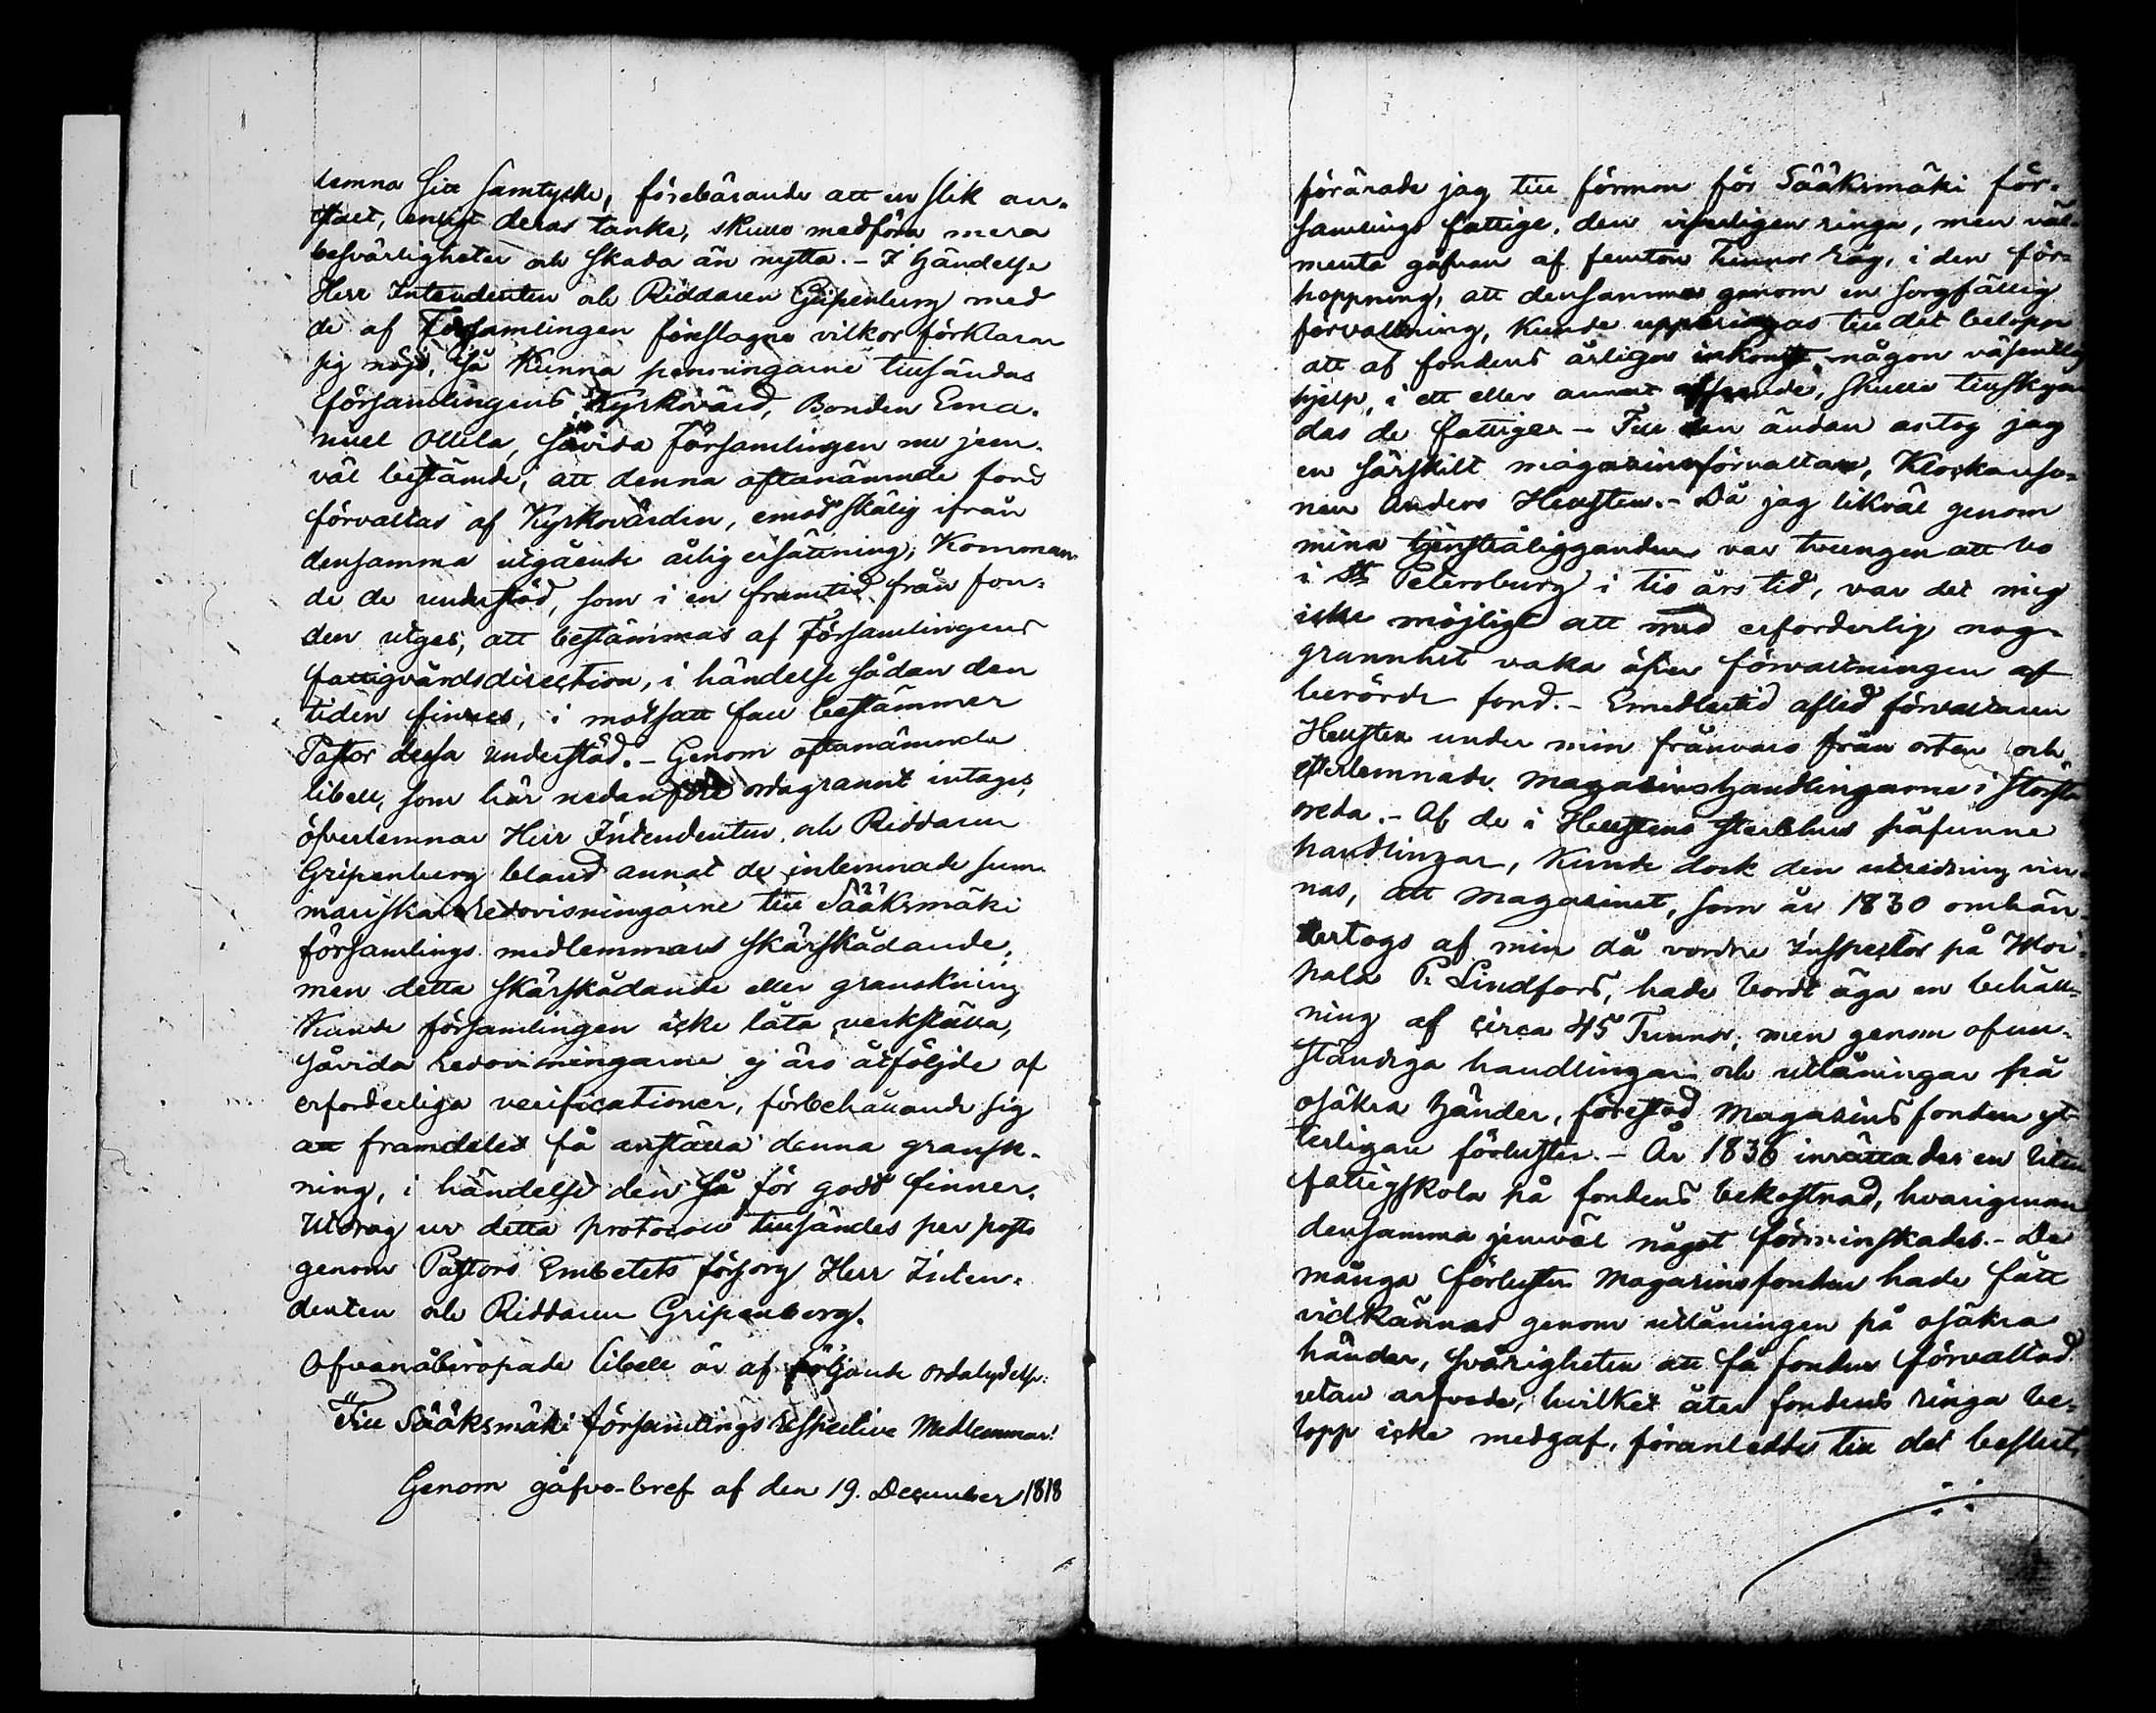 lemna sitt samtycke, förebärande att en slik an-
stalt, enligt deras tanke, skulle medföra mera
besvärligheter och skada än nytta. - I händelse
Herr Intendenten och Riddaren Gripenberg med
de af Församlingen föreslagne vilkor förklarar
sig nöjd, så kunna penningarne tillsändas
församlingens Kyrkovärd, Bonden Ema-
nuel Ollila, såvida Församlingen nu jem-
väl bestämde, att denna oftanämnde fond
förvaltas af Kyrkovärden, emot skälig ifrån
densamma utgående årlig ersättning; Komman-
de de understöd, som i en framtid från fon-
den utges, att bestämmas af Församlingens
fattigvårdsdirection, i händelse sådan den
tiden finnes, i motsatt fall bestämmer
Pastor dessa understöd. - Genom oftanämnde
libell, som här nedanföre ordagrannt intages,
öfverlemnar Herr Intendenten och Riddaren
Gripenberg bland annat de inlemnade sum-
mariska redovisningarne till Sääksmäki
församlings medlemmars skärskådande,
men detta skärskådande eller granskning
kunde församlingen icke låta verkställa,
såvida redovisningarne ej äro åtföljde af
erforderliga verificationer, förbehållande sig
att framdeles få anställa denna gransk-
ning, i händelse den så för godt finner.
Utdrag ur detta protocoll tillsändes per posto
genom Pastors Embetets försorg Herr Inten-
denten och Riddaren Gripenberg.
Ofvanåberopade libell är af följande ordalydelse:
"Till Sääksmäki församlings Respective Medlemmar!
Genom gåfvo-bref af den 19. December 1818
förärade jag till förmon för Sääksmäki för-
samlings fattige, den visserligen ringa, men väl-
menta gåfvan af femton Tunnor Råg, i den för-
hoppning, att densamma genom en sorgfällig
förvaltning, kunde uppbringas till det belopp
att af fondens årliga inkomst någon väsentlig
hjelp, i ett eller annat afseende, skulle tillskyn-
das de fattiga. - Till den ändan antog jag
en särskilt magasinsförvaltare, Klockareso-
nen Anders Hellsten. - Då jag likväl genom
mina tjenståligganden var tvungen att bo
i St Petersburg i tio års tid, var det mig
icke möjligt att med erforderlig nog-
grannhet vaka öfver förvaltningen af
berörde fond. - Emedlertid afled förvaltaren
Hellsten under min frånvaro från orten och
efterlemnade magasinshandlingarne i största
oreda. - Af de i Hellstens sterbhus påfunne
handlingar, kunde dock den utredning vin-
nas, att magasinet, som år 1830 omhän-
dertogs af min då vordne Inspector på Woi-
pala P. Lindfors, hade bordt äga en behåll-
ning af circa 45 Tunnor; men genom ofull-
ständiga handlingar och utlåningar på
osäkra händer, förestod Magasins fonden yt-
terligare förluster. - År 1836 inrättades en liten
fattigskola på fondens bekostnad, hvarigenom
densamma jemväl något förminskades. - De
många förluster Magasinsfonden hade fått
vidkännas genom utlåningen på osäkra
händer, svårigheten att få fonden förvaltad
utan arfvode, hvilket åter fondens ringa be-
lopp icke medgaf, föranledde till det beslut,